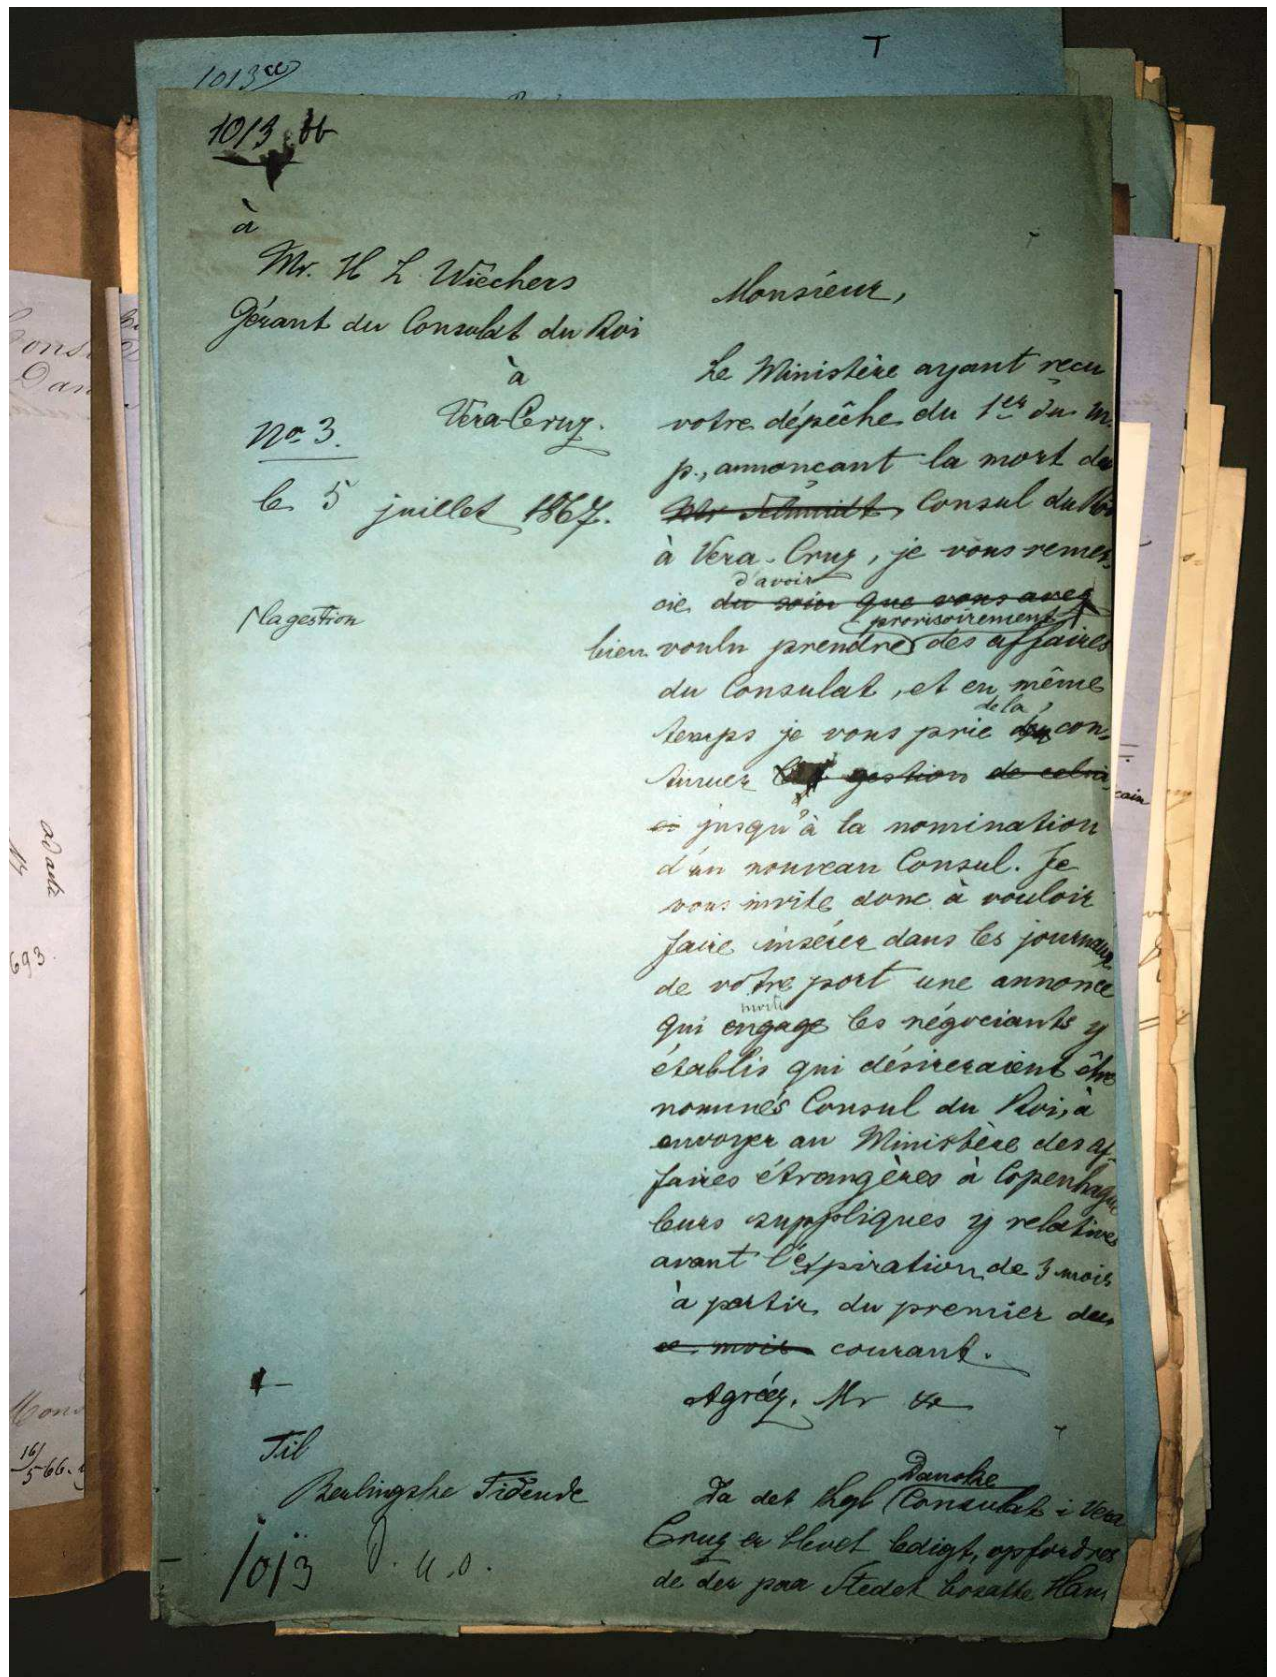 T
1013 cc
1013 bb
à
Mr. H L Wiechers
Gérant du Consulat du Roi
à
Vera-Cruz.
No 3.
le 5 juillet 1867.
la gestion
Monsieur,
Le Ministère ayant reçu
votre dépêche du 1er du m.
p., annonçant la mort du
Mr Schmidt, Consul du Roi
à Vera-Cruz, je vous remer-
d'avoir
cie du soin que vous avez
provisoirement
bien voulu prendre des affaires
du Consulat, et en même
de la
temps je vous prie de con-
tinuer gestion de celui-
ci jusqu'à la nomination
d'un nouveau Consul. Je
vous invite donc à vouloir
faire insérer dans les journaux
de votre port une annonce
invite
qui engage les négociants y
établis qui désireraient être
nommés Consul du Roi, à
envoyer au Ministère des af-
faires étrangères à Copenhague
leurs suppliques y relatives
avant l'expiration de 3 mois
à partir du premier du
ce mois courant.
Agréez, Mr &
Til
Berlingske Tidende
1013 D. u. o.
Danske
Da det kgl Consulat i Vera
Cruz er blevet ledigt, opfordres
de der paa Stedet bosatte Han
Dan
693.
16/5 66.